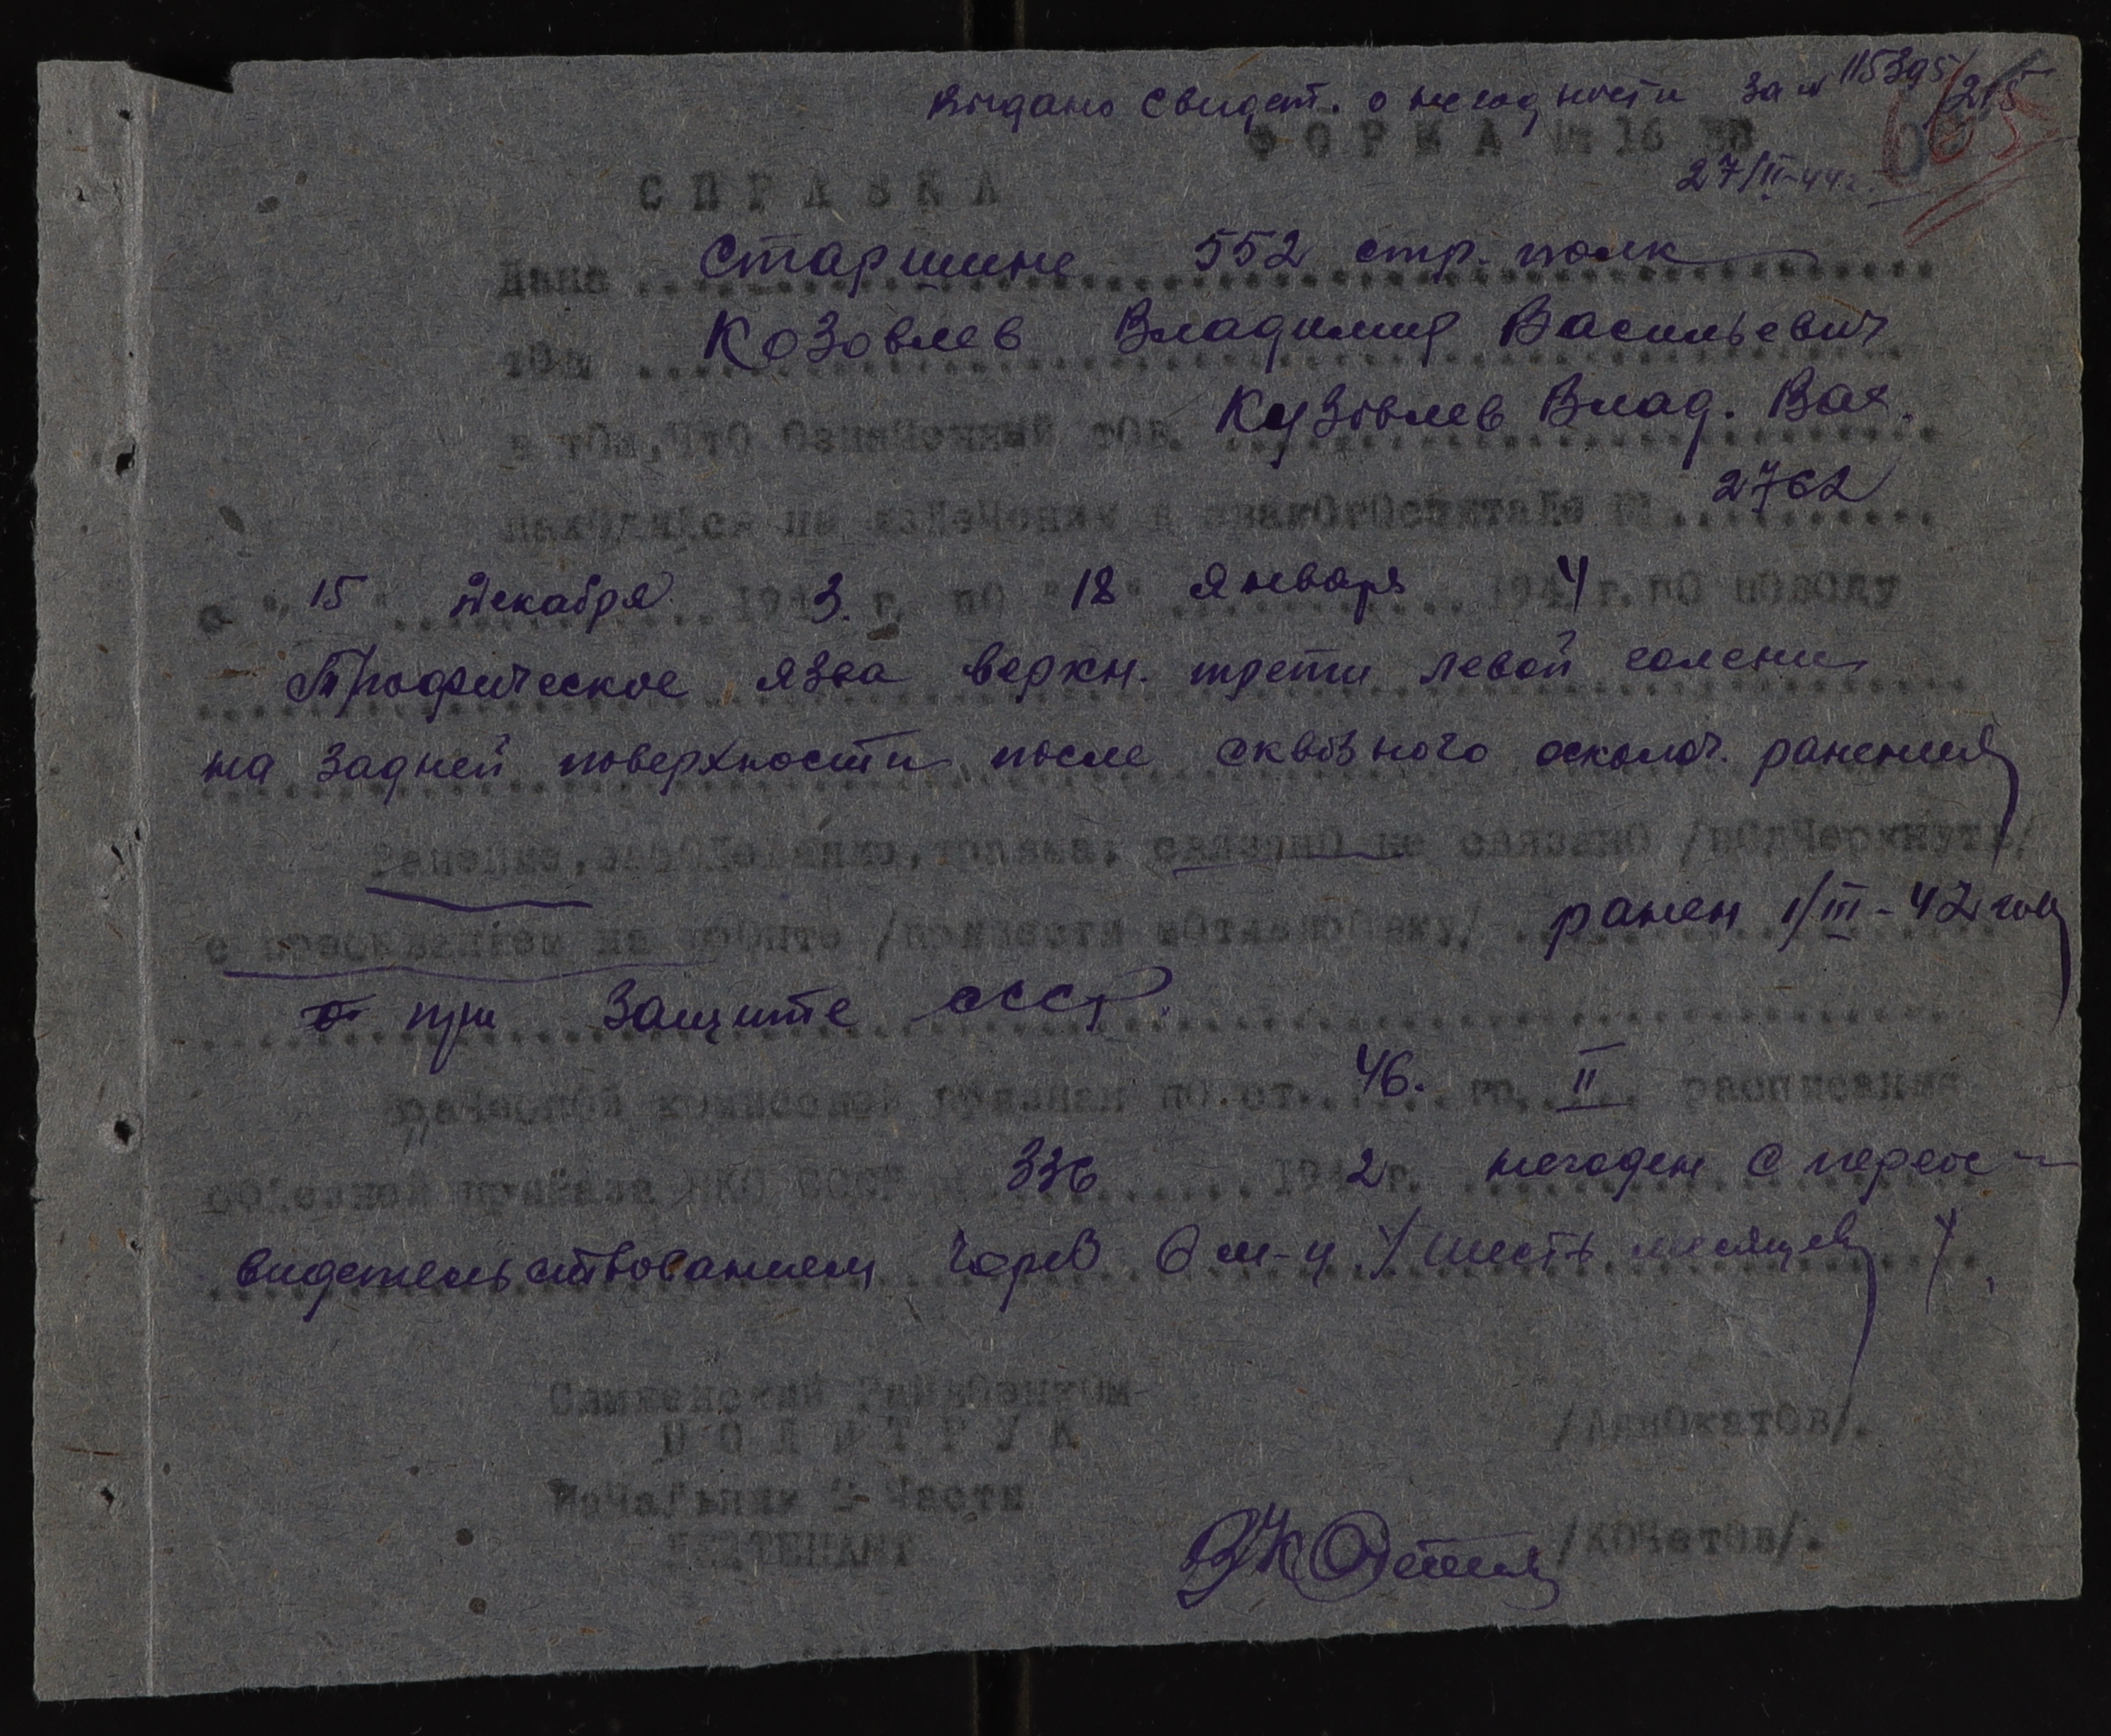 Выдано свидет. о негодности за № 115395/215
ФОРМА № 16 ЗВ
27/II-44г.
СПРАВКА
Дана Старшине 552 стр. полк
том Козовлев Владимир Васильевич
в том, что означенный тов. Кузовлев Влад. Вас.
находился на излечении в эвакогоспитале № 2762
с "15" декабря 1943 г. по "18" января 1944 г. по поводу
Трофическое язва верхн. трети левой голени
на задней поверхности после сквозного осколоч. ранения
Ранение, заболевание, травма: связано не связано /подчеркнуть/
с пребыванием на фронте /привести мотивировку/ ранен 1/III-42 год
при защите СССР.
Врачебной комиссией признан по ст. 46. гр. II расписания
болезней приказа НКО СССР № 336 1942 г. негоден с переос-
видетельствованием через 6 м-ц /шесть месяцев/.
Райвоенком
ПОЛИТРУК /Адвокатов/.
Начальник 2- Части
ЛЕЙТЕНАНТ /Кочетов/.